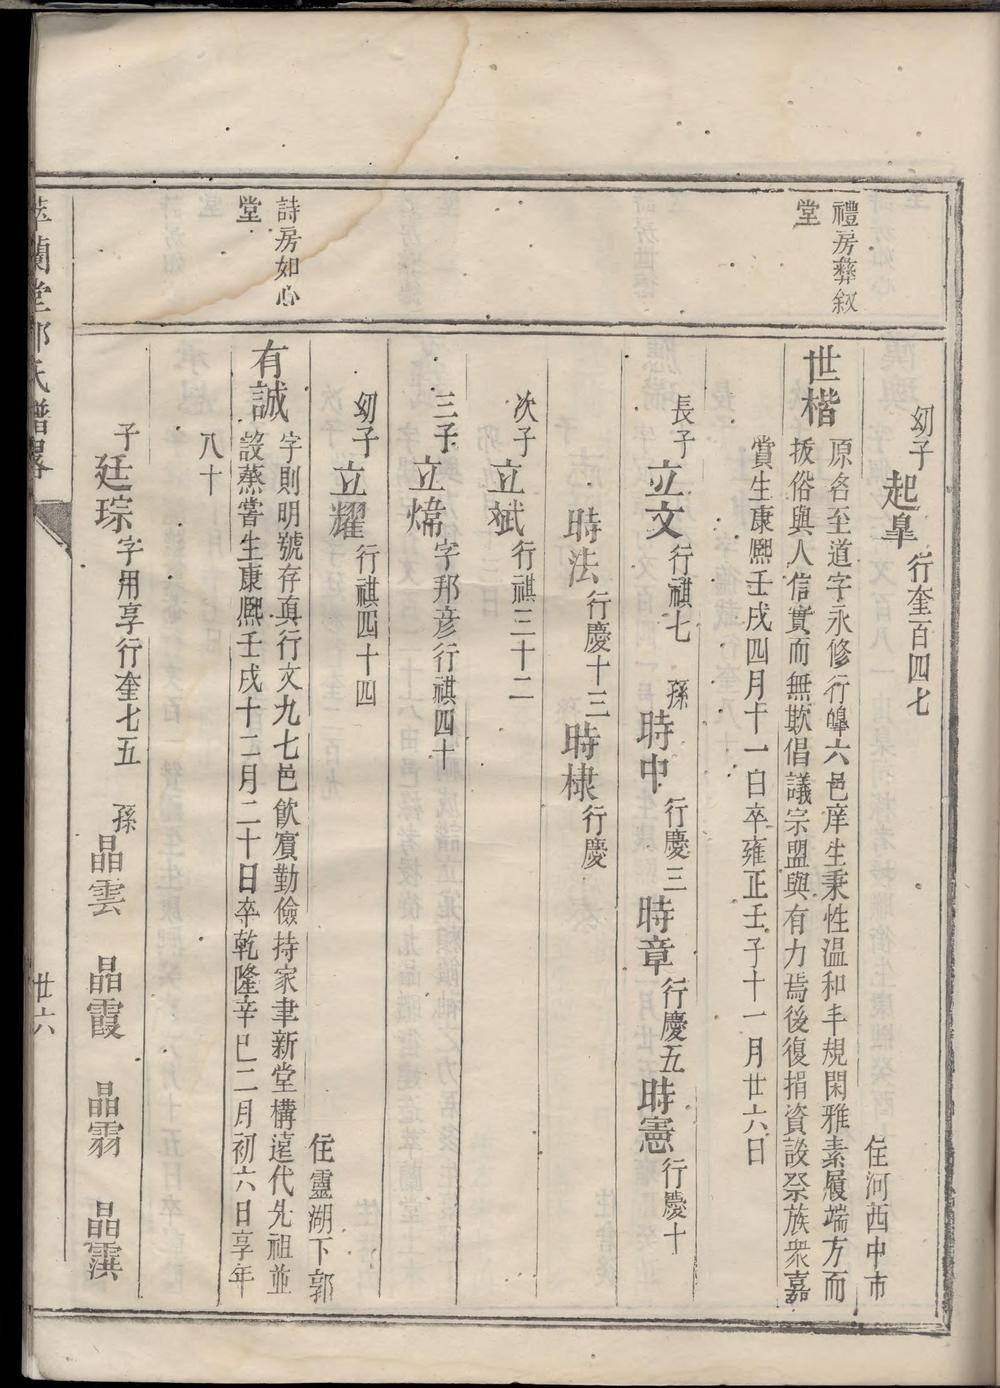 禮房彝敘
堂
詩房如心
堂
幼子起臯行奎百四七
住河西中市
世楷原名至道字永修行皥六邑庠生秉性溫和丰規閑雅素履端方而
拔俗與人信實而無欺倡議宗盟與有力焉後復捐資設祭族衆嘉
賞生康熙壬戌四月十一日卒雍正壬子十一月廿六日
長子立文行祺七 孫時中行慶三時章行慶五時憲行慶十
時法行慶十三時棣行慶
次子立斌行祺三十二
三子立煒字邦彦行祺四十
幼子立耀行祺四十四
住靈湖下郭
有誠字則明號存真行文九七邑飲賓勤儉持家聿新堂構遠代先祖並
設蒸嘗生康熙壬戌十二月二十日卒乾隆辛巳二月初六日享年
八十
子廷琮字用享行奎七五 孫晶雲 晶霞 晶雱 晶霟
萃蘭堂郭氏譜畧
廿六